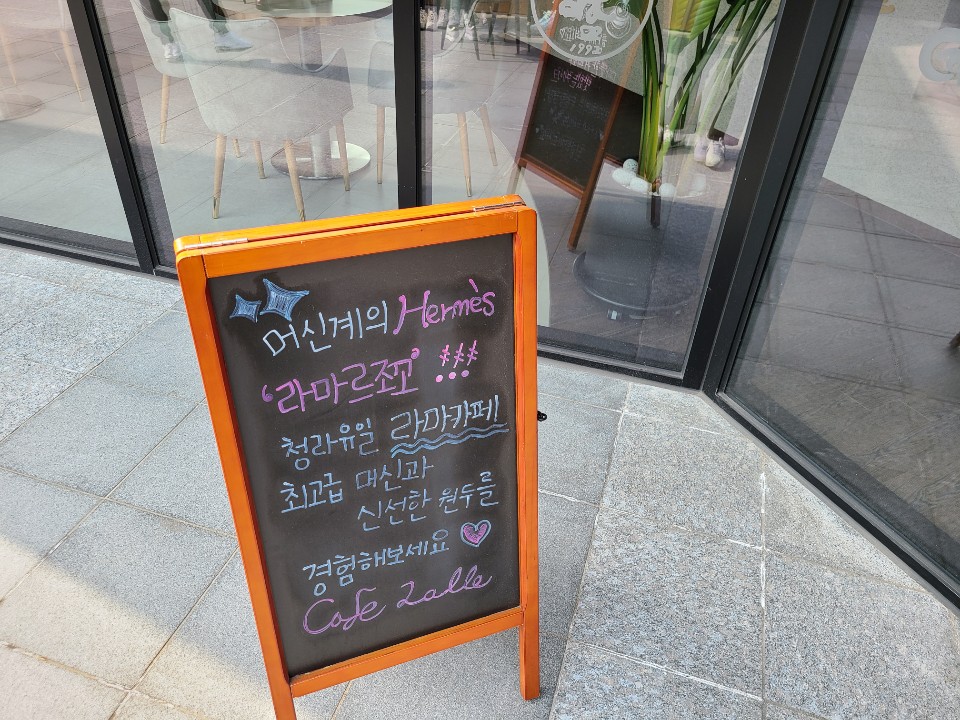 머신계의 Hermès
'라마르조꼬' !!!
청라유일 라마카페!
최고급 머신과
신선한 원두를
경험해보세요
Cafe
1992